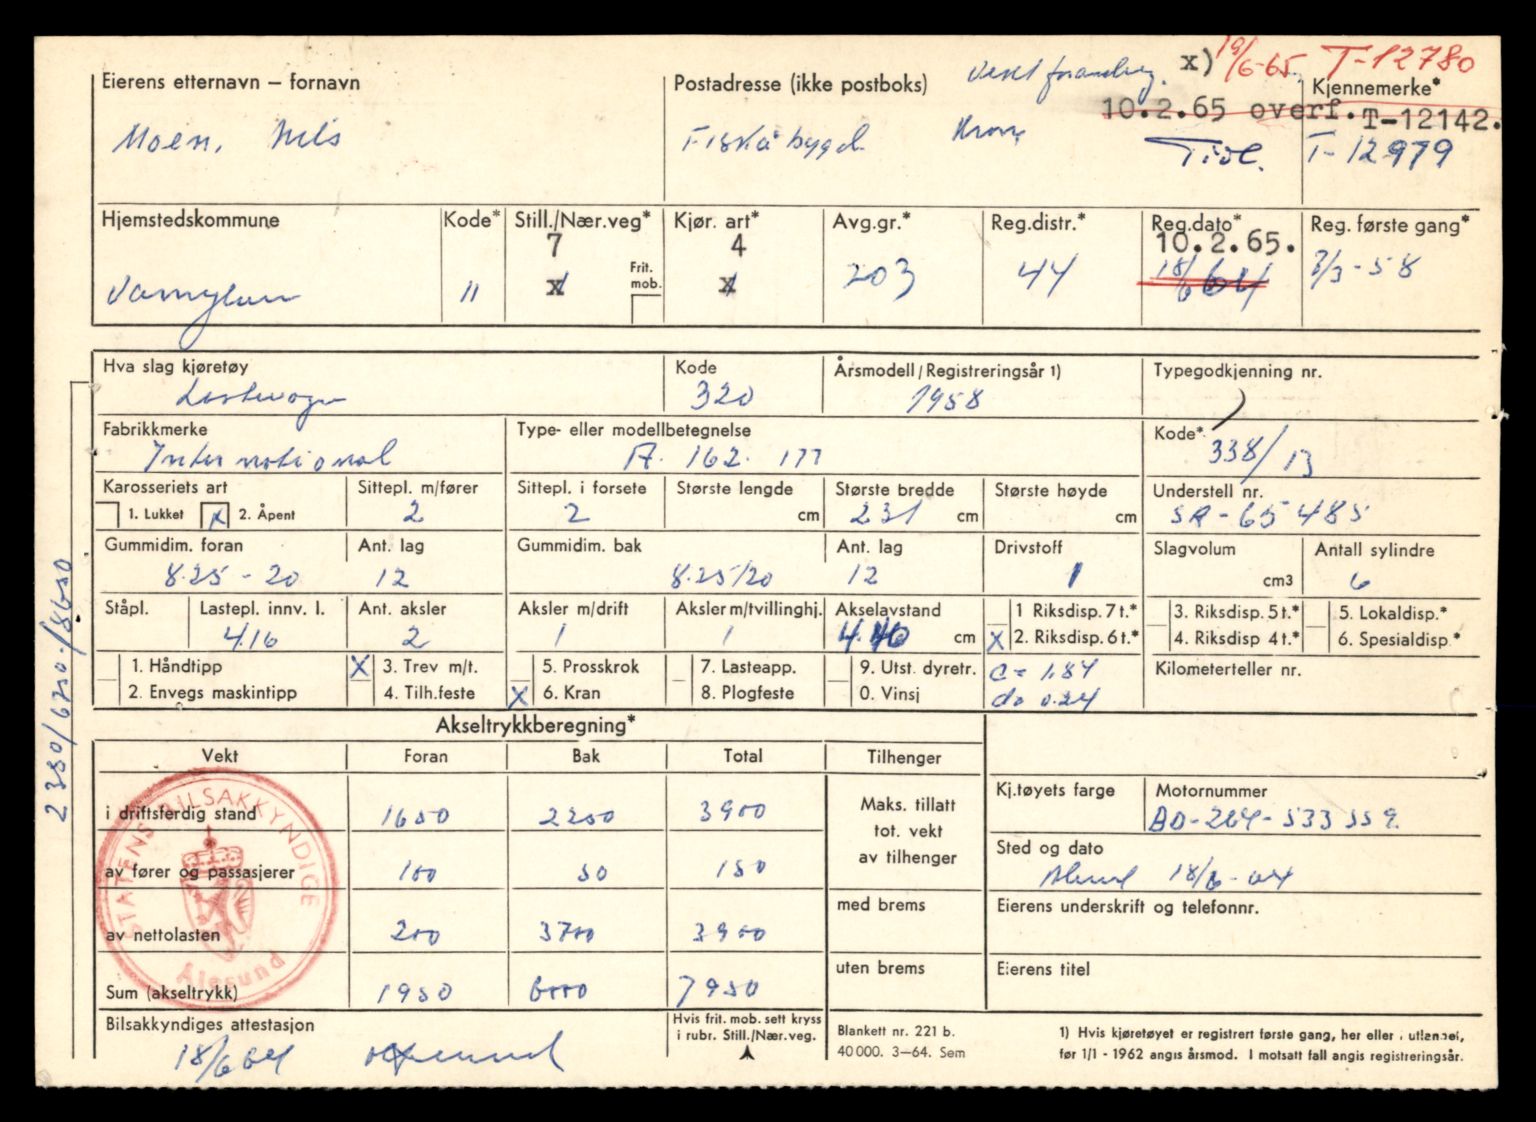 x) 19/6-65. T-12780
Eierens etternavn – fornavn Postadresse (ikke postboks) Kjennemerke*
10.2.65 overf. T-12142.
Moen, Nils Fiskåbygd T-12979
Hjemstedskommune Kode* Still./Nær.veg* Kjør. art* Avg.gr.* Reg.distr.* Reg.dato* Reg. første gang*
7 4 10.2.65.
Frit. mob.
Vanylven 11 x x 203 44 18/6 64 3/3-58
Hva slag kjøretøy Kode Årsmodell/Registreringsår 1) Typegodkjenning nr.
Lastevogn 320 1958
Fabrikkmerke Type- eller modellbetegnelse Kode*
International A. 162. 177 338/13
Karosseriets art Sittepl. m/fører Sittepl. i forsete Største lengde Største bredde Største høyde Understell nr.
1. Lukket x 2. Åpent 2 2 cm 231 cm cm SA-65485
Gummidim. foran Ant. lag Gummidim. bak Ant. lag Drivstoff Slagvolum Antall sylindre
8.25-20 12 8.25/20 12 1 cm3 6
Ståpl. Lastepl. innv. l. Ant. aksler Aksler m/drift Aksler m/tvillinghj. Akselavstand 1 Riksdisp. 7 t.* 3. Riksdisp. 5 t.* 5. Lokaldisp.*
4.16 2 1 1 4.40 cm x 2. Riksdisp. 6 t.* 4. Riksdisp 4 t.* 6. Spesialdisp.*
1. Håndtipp x 3. Trev m/t. 5. Prosskrok 7. Lasteapp. 9. Utst. dyretr. C = 1.84 Kilometerteller nr.
2. Envegs maskintipp 4. Tilh.feste x 6. Kran 8. Plogfeste 0. Vinsj do 0.24
Akseltrykkberegning*
Vekt Foran Bak Total Tilhenger
i driftsferdig stand 1650 2250 3900 Maks. tillatt tot. vekt av tilhenger
Kj.tøyets farge Motornummer
BD-264-533559
av fører og passasjerer 100 50 150
Sted og dato
18/6-64
av nettolasten 200 3700 3900 med brems
Eierens underskrift og telefonnr.
Sum (akseltrykk) 1950 6000 7950 uten brems
Eierens titel
Bilsakkyndiges attestasjon
18/6 64
Hvis frit. mob. sett kryss
i rubr. Still./Nær.veg.
Blankett nr. 221 b.
40 000. 3—64. Sem
1) Hvis kjøretøyet er registrert første gang, her eller i utlandet,
før 1/1 - 1962 angis årsmod. I motsatt fall angis registreringsår.
STATENS BILSAKKYNDIGE
Ålesund
2350/6250-/8650